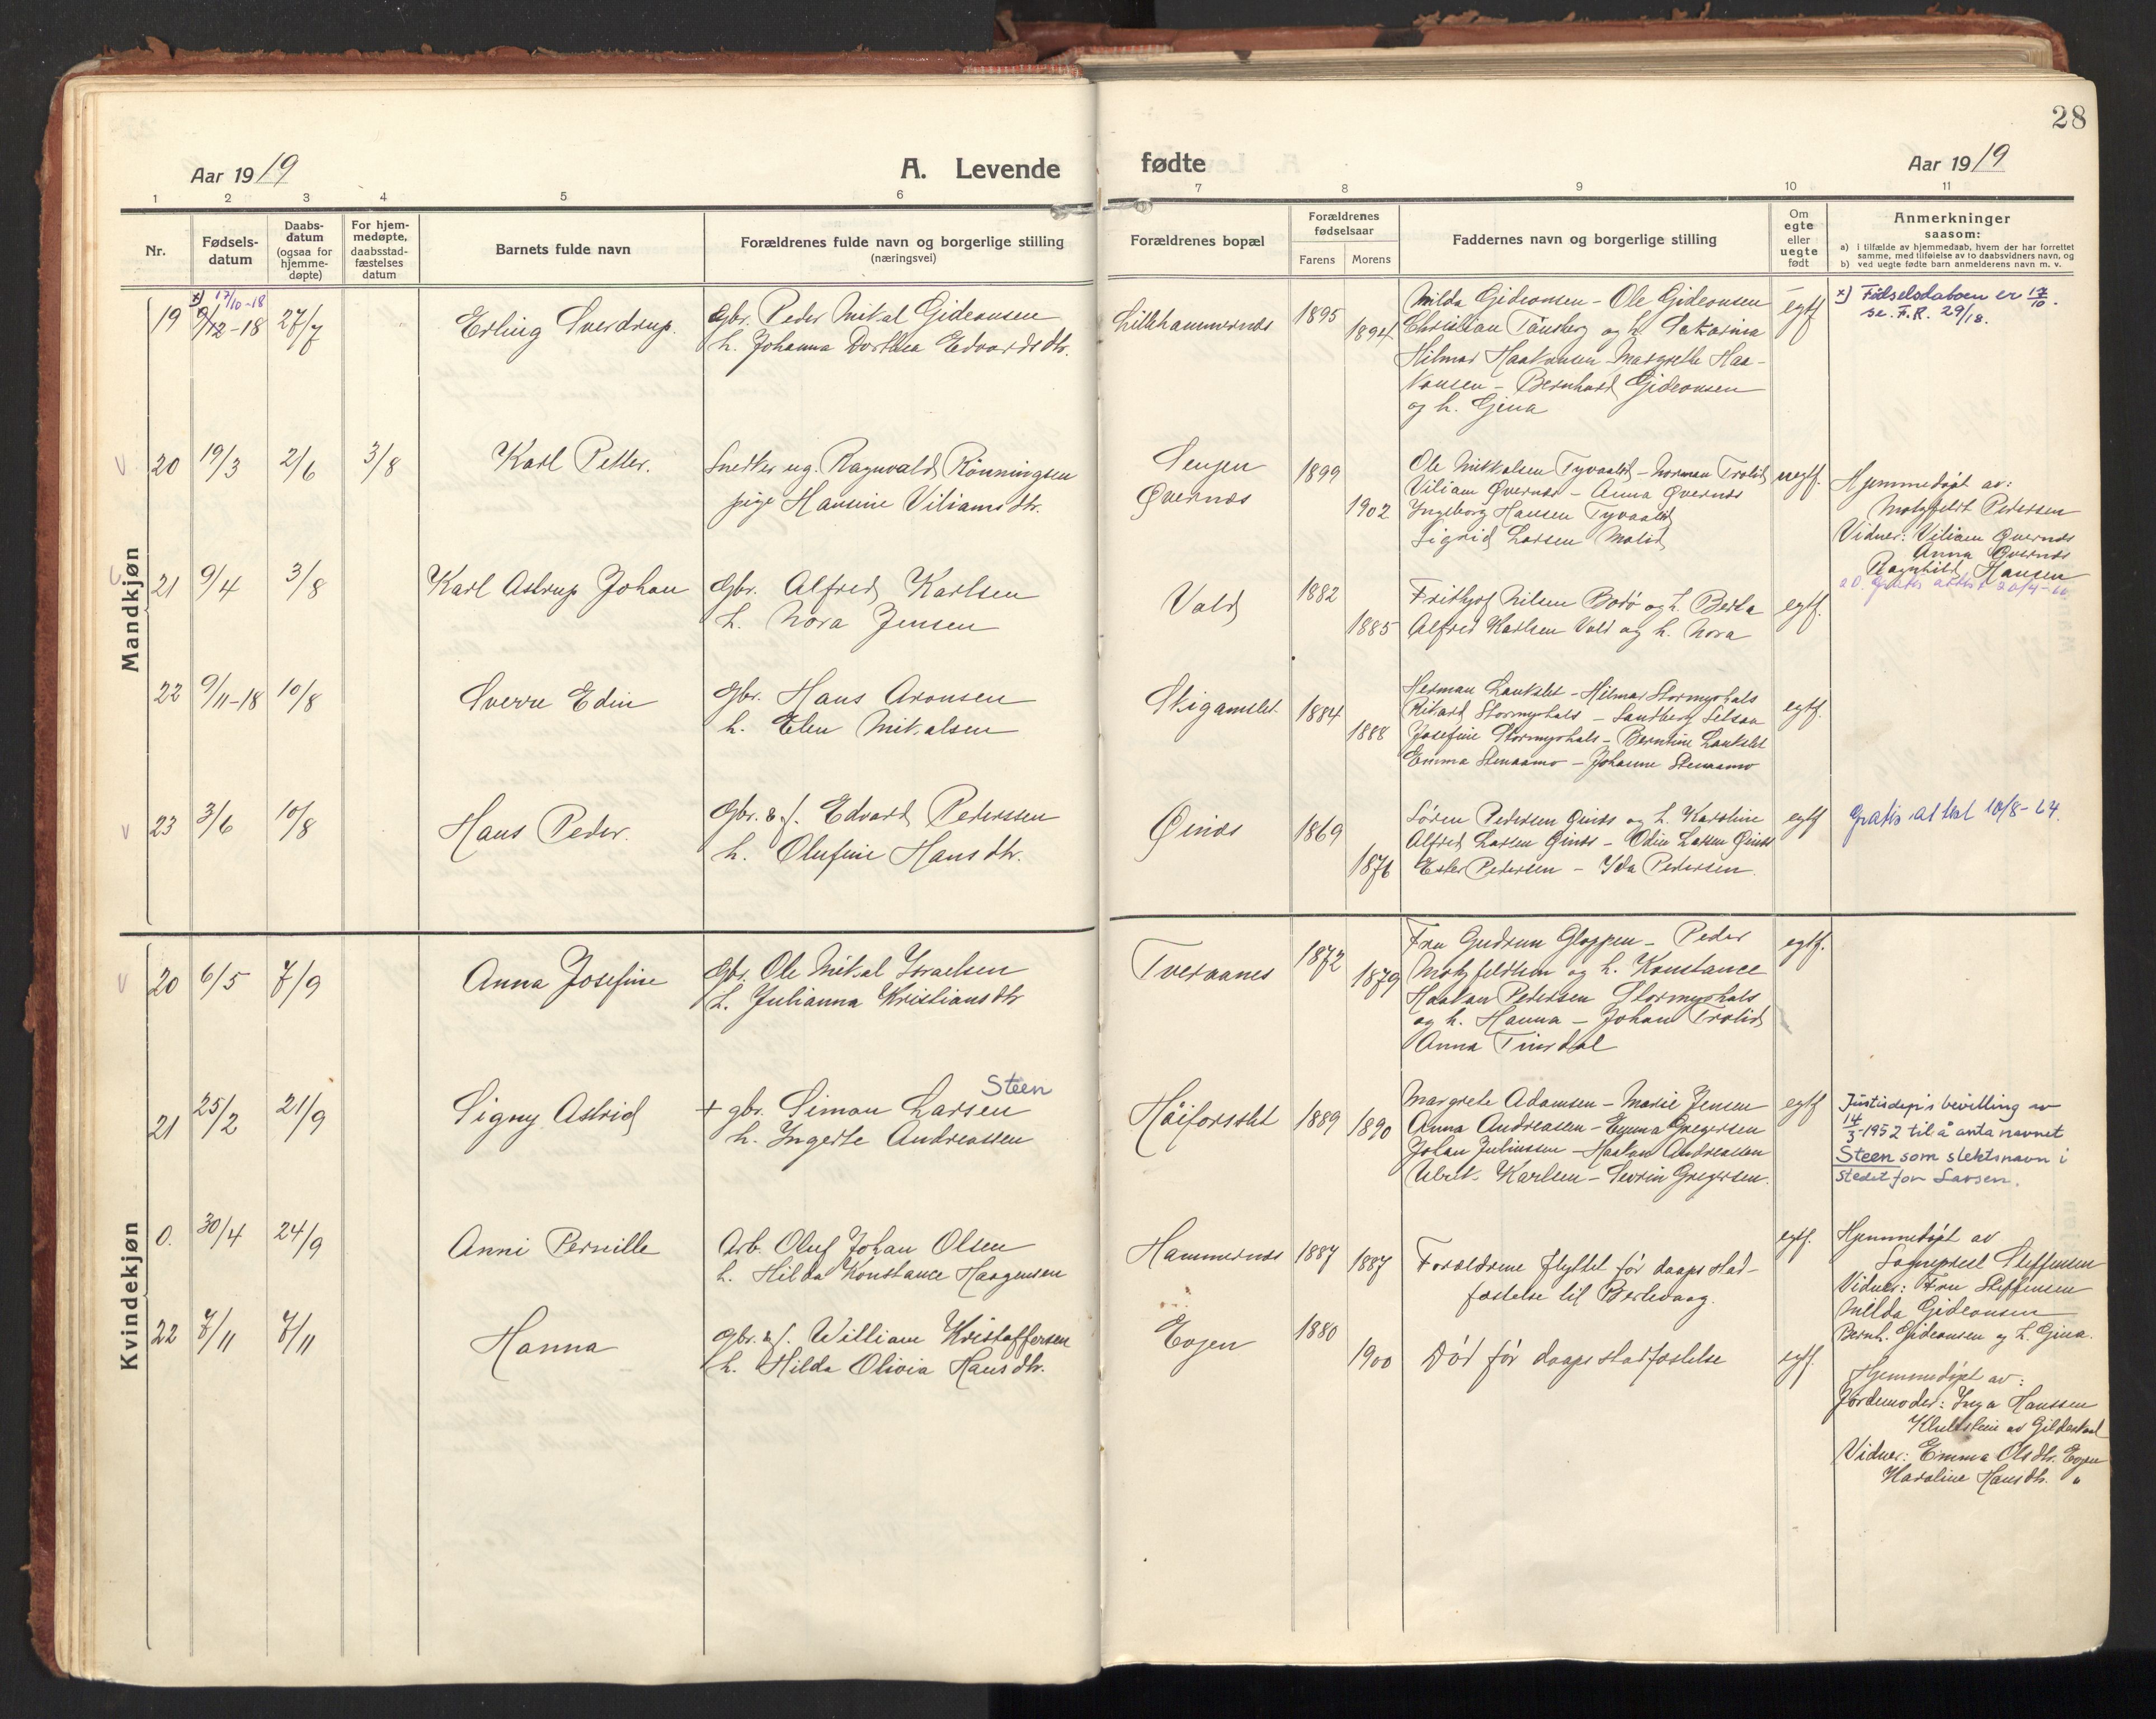 28
Aar 1919
A. Levende
fødte
Aar 1919
1 2 3 4 5 6 7 8 9 10 11
Nr.
Fødsels-
datum
Daabs-
datum
(ogsaa for
hjemme-
døpte)
For hjem-
medøpte,
daabsstad-
fæstelses
datum
Barnets fulde navn
Forældrenes fulde navn og borgerlige stilling
(næringsvei)
Forældrenes bopæl
Forældrenes
fødselsaar
Farens Morens
Faddernes navn og borgerlige stilling
Om
egte
eller
uegte
født
Anmerkninger
saasom:
a) i tilfælde av hjemmedaab, hvem der har forrettet
samme, med tilføielse av to daabsvidners navn, og
b) ved uegte fødte barn anmelderens navn m. v.
Mandkjøn
x) 17/10-18
19 9/12-18 27/7
Erling Sverdrup.
Gbr. Peder Mikal Gideonsen
h. Johanna Dorthea Edvardsdtr.
Lillehammernes
1895
1894
Milda Gideonsen – Ole Gideonsen
Christian Tønsberg og h. Sakarina
Hilmar Haakonsen – Margrethe Haa-
konsen – Bernhard Gideonsen
og h. Gina
egtf
x) Fødselsdatoen er 17/10.
se. F.R. 29/18.
20 19/3 2/6 3/8
Karl Petter.
Snedker ug. Ragnvald Rønningsen
pige Hansine Viliamsdtr.
Senjen
Øvernes
1899
1902
Ole Mikkalsen Tyvaalid – Norman Trolid
Viliam Øvernes – Anna Øvernes
Ingeborg Hansen Tyvaalid
Sigrid Larsen Molid
uegtf.
Hjemmedøpt av:
Motzfeldt Pedersen
Vidner: Viliam Øvernes
Anna Øvernes
Ragnhild Hansen
21 9/4 3/8
Karl Astrup Johan
Gbr. Alfred Karlsen
h. Nora Jensen
Vold
1882
1885
Fridtjof Nilsen Bodø og h. Berta
Alfred Karlsen Vold og h. Nora
egtf.
22 9/11-18 10/8
Sverre Edin
Gbr. Hans Aronsen
h. Elen Mikalsen
Skigamslet
1884
1888
Herman Lankslet – Hilmar Stormyrhals
Rikard Stormyrhals – Sandberg Selsaa
Josefine Stormyrhals – Berntine Lankslet
Emma Stenaamo – Johanne Stenaamo
egtf.
23 3/6 10/8
Hans Peder.
Gbr. & f. Edvard Pederssen
h. Olufine Hansdtr.
Øines
1869
1876
Søren Pedersen Øines og h. Karoline
Alfred Larsen Øines – Odin Larsen Øines
Ester Pedersen – Ida Pedersen.
egtf
Gratis attest 10/8-64.
Kvindekjøn
20 6/5 7/9
Anna Josefine
Gbr. Ole Mikal Israelsen
h. Julianna Kristiansdtr
Tveraanes
1872
1879
Fru Gudrun Gloppen – Peder
Motzfeldtsen og h. Konstance
Haakon Pedersen Stormyrhals
og h. Hanna – Johan Trolid
Anna Finsdal
egtf.
21 25/2 21/9
Signy Astrid
Steen
+ gbr. Simon Larsen
h. Ingerte Andreassen
Høiforsslet
1889
1890
Margrete Adamsen – Marie Jensen
Anna Andreassen – Emma Gregersen
Johan Juliussen – Haakon Andreassen
Ulrik Karlsen – Sevrin Gregersen.
egtf
Justisdep's bevilling av
14/3-1952 til å anta navnet
Steen som slektsnavn i
stedet for Larsen.
0. 30/4 24/9
Anni Pernille
Arb. Oluf Johan Olsen
h. Hilda Konstance Haagensen
Hammernes
1887
1887
Forældrene flyttet før daapsstad-
fæstelse til Berlevaag.
egtf.
Hjemmedøpt av
Sogneprest Steffensen
Vidner: Fru Steffensen
Milda Gideonsen
Bernh. Gideonsen og h. Gina.
22 7/11 7/11
Hanna
Gbr. & f. William Kristoffersen
h. Hilda Olivia Hansdtr.
Evjen
1880
1900
Død før daapsstadfæstelse
egtf.
Hjemmedøpt av:
Jordemoder: Inga Hanssen
av Gildeskaal
Vidner: Emma Olsdtr. Evjen
Karoline Hansdtr. "